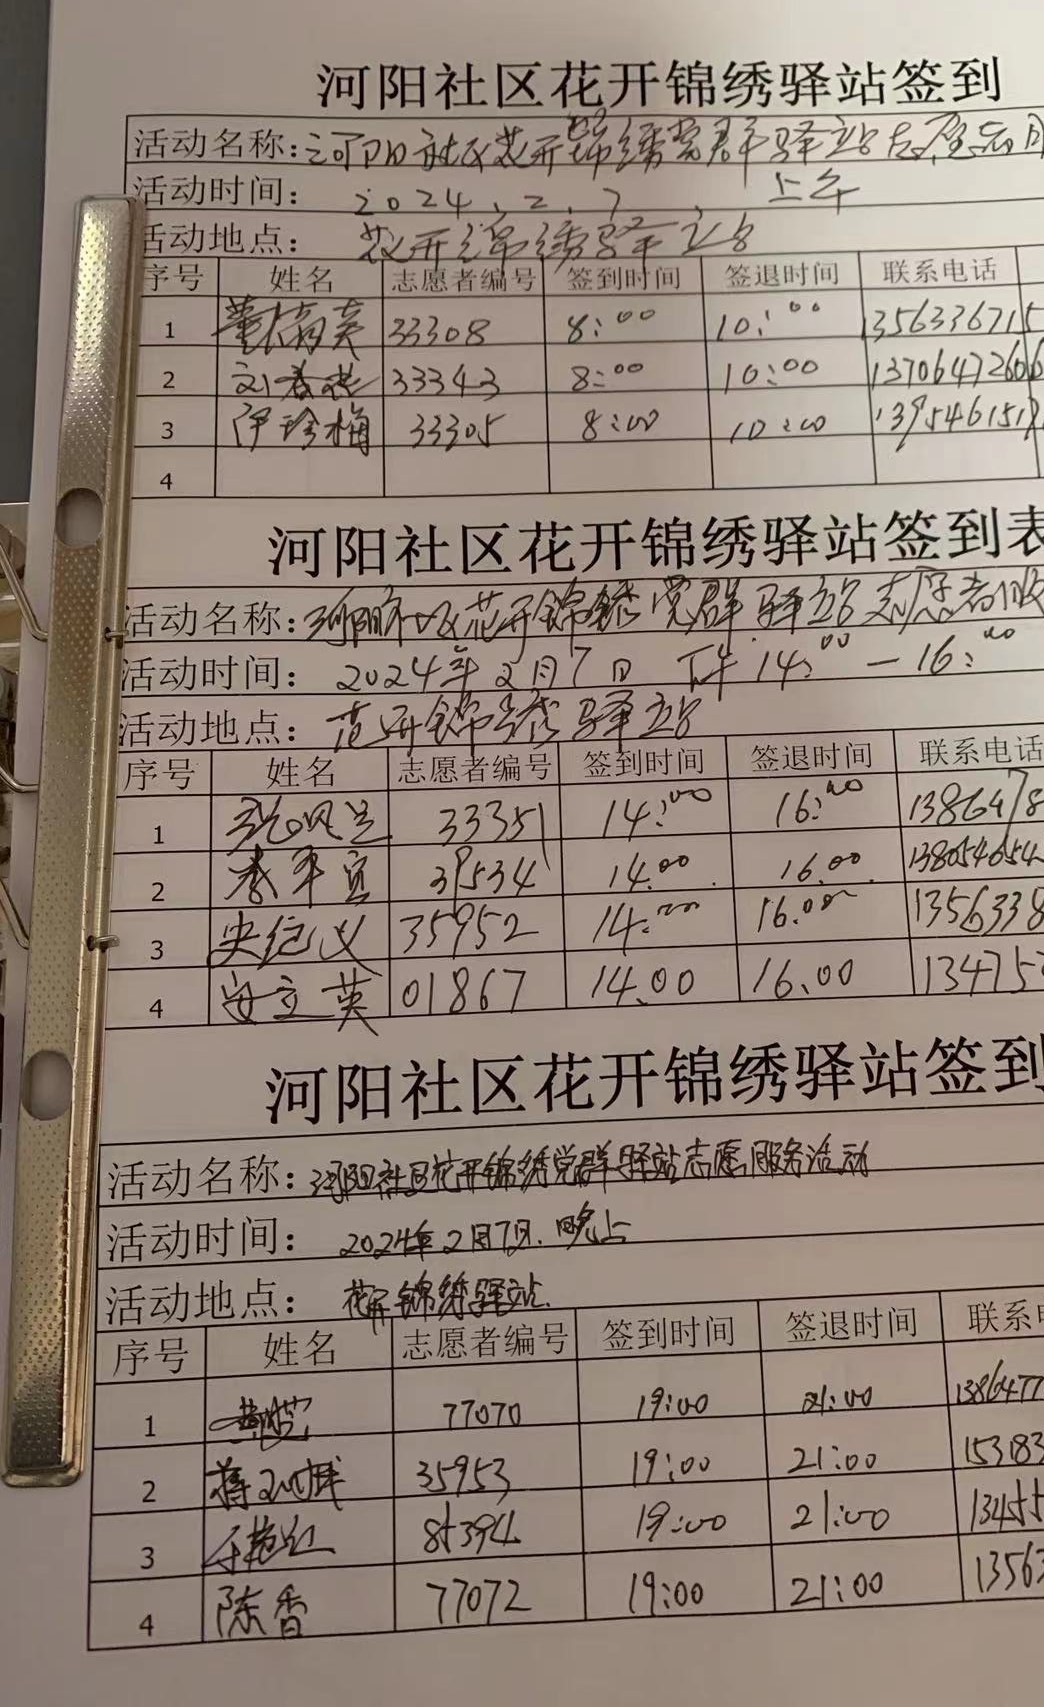 河阳社区花开锦绣驿站签到
活动名称:河阳社区花开锦绣党群驿站志愿者
活动时间: 2024.2.7 上午
活动地点: 花开锦绣驿站
序号 姓名 志愿者编号 签到时间 签退时间 联系电话
1 33308 8:00 10:00 1356336715
2 刘春花 33343 8:00 10:00 13706472606
3 伊珍梅 33305 8:00 10:00 1395461517
4
河阳社区花开锦绣驿站签到表
活动名称:河阳社区花开锦绣党群驿站志愿者服
活动时间: 2024年2月7日 下午14:00-16:00
活动地点: 花开锦绣驿站
序号 姓名 志愿者编号 签到时间 签退时间 联系电话
1 33351 14:00 16:00 1386478
2 39534 14.00 16.00 138054654
3 史纪义 35952 14:00 16.00 1356338
4 安立英 01867 14.00 16.00 134753
河阳社区花开锦绣驿站签到
活动名称:河阳社区花开锦绣党群驿站志愿服务活动
活动时间: 2024年2月7日.晚上
活动地点: 花开锦绣驿站.
序号 姓名 志愿者编号 签到时间 签退时间 联系
1 77070 19:00 21:00 1386477
2 35953 19:00 21:00 153183
3 于艳红 85394 19:00 21:00 13455
4 陈香 77072 19:00 21:00 13563